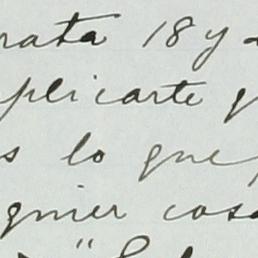 rata 18 y
plicarte q
s lo que
quier cosa
"